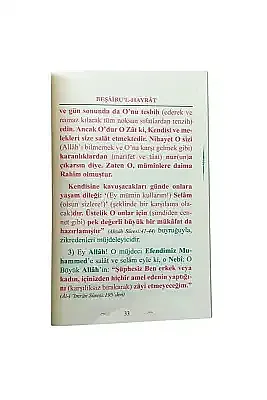 BEŞÂİRU'L-HAYRÂT
ve gün sonunda da O'nu tesbih (ederek ve
namaz kılacak tüm noksan sıfatlardan tenzih)
edin. Ancak O'dur O Zât ki, Kendisi ve me-
lekleri size salât etmektedir. Nihayet O sizi
(Allâh'ı bilmemek ve O'na karşı gelmek gibi)
karanlıklardan (marifet ve tâat) nur(un)a
çıkarsın diye. Zaten O, müminlere daima
Rahîm olmuştur.
Kendisine kavuşacakları günde onlara
yaşam dileği: '(Ey mümin kullarım!) Selâm
(olsun sizlere!)' (şeklinde bir karşılama ola-
caktır). Üstelik O onlar için (şimdiden cen-
net gibi) pek değerli büyük bir mükâfat da
hazırlamıştır" (Ahzâb Sûresi:41-44) buyruğuyla,
zikredenleri müjdeleyicidir.
3) Ey Allâh! O müjdeci Efendimiz Mu-
hammed'e salât ve selâm eyle ki, o Nebî; O
Büyük Allâh'ın: "Şüphesiz Ben erkek veya
kadın, içinizden hiçbir amel edenin yaptığı-
nı (karşılıksız bırakarak) zâyi etmeyeceğim."
(Âl-i İmrân Sûresi:195'den)
33